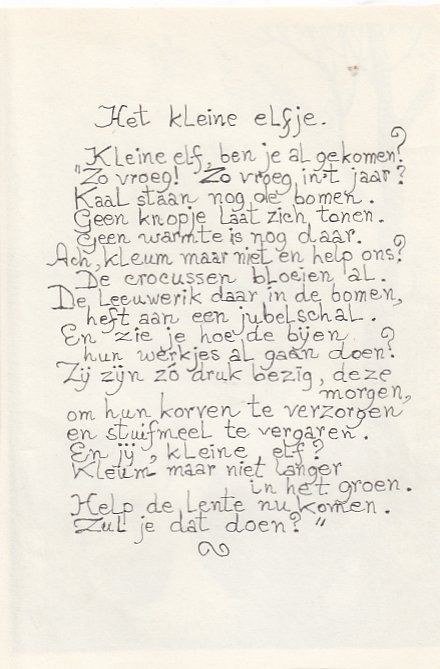 Het kleine elfje.
Kleine elf, ben je al gekomen?
"Zo vroeg! Zo vroeg in 't jaar?
Kaal staan nog de bomen.
Geen knopje laat zich tonen.
Geen warmte is nog daar.
Ach, kleum maar niet en help ons?
De crocussen bloeien al.
De Leeuwerik daar in de bomen,
heft aan een jubelschal.
En zie je hoe de bijen
hun werkjes al gaan doen?
Zij zijn zó druk bezig, deze
morgen,
om hun korven te verzorgen
en stuifmeel te vergaren.
En jij, kleine elf?
Kleum maar niet langer
in het groen.
Help de Lente nu komen.
Zul je dat doen?"